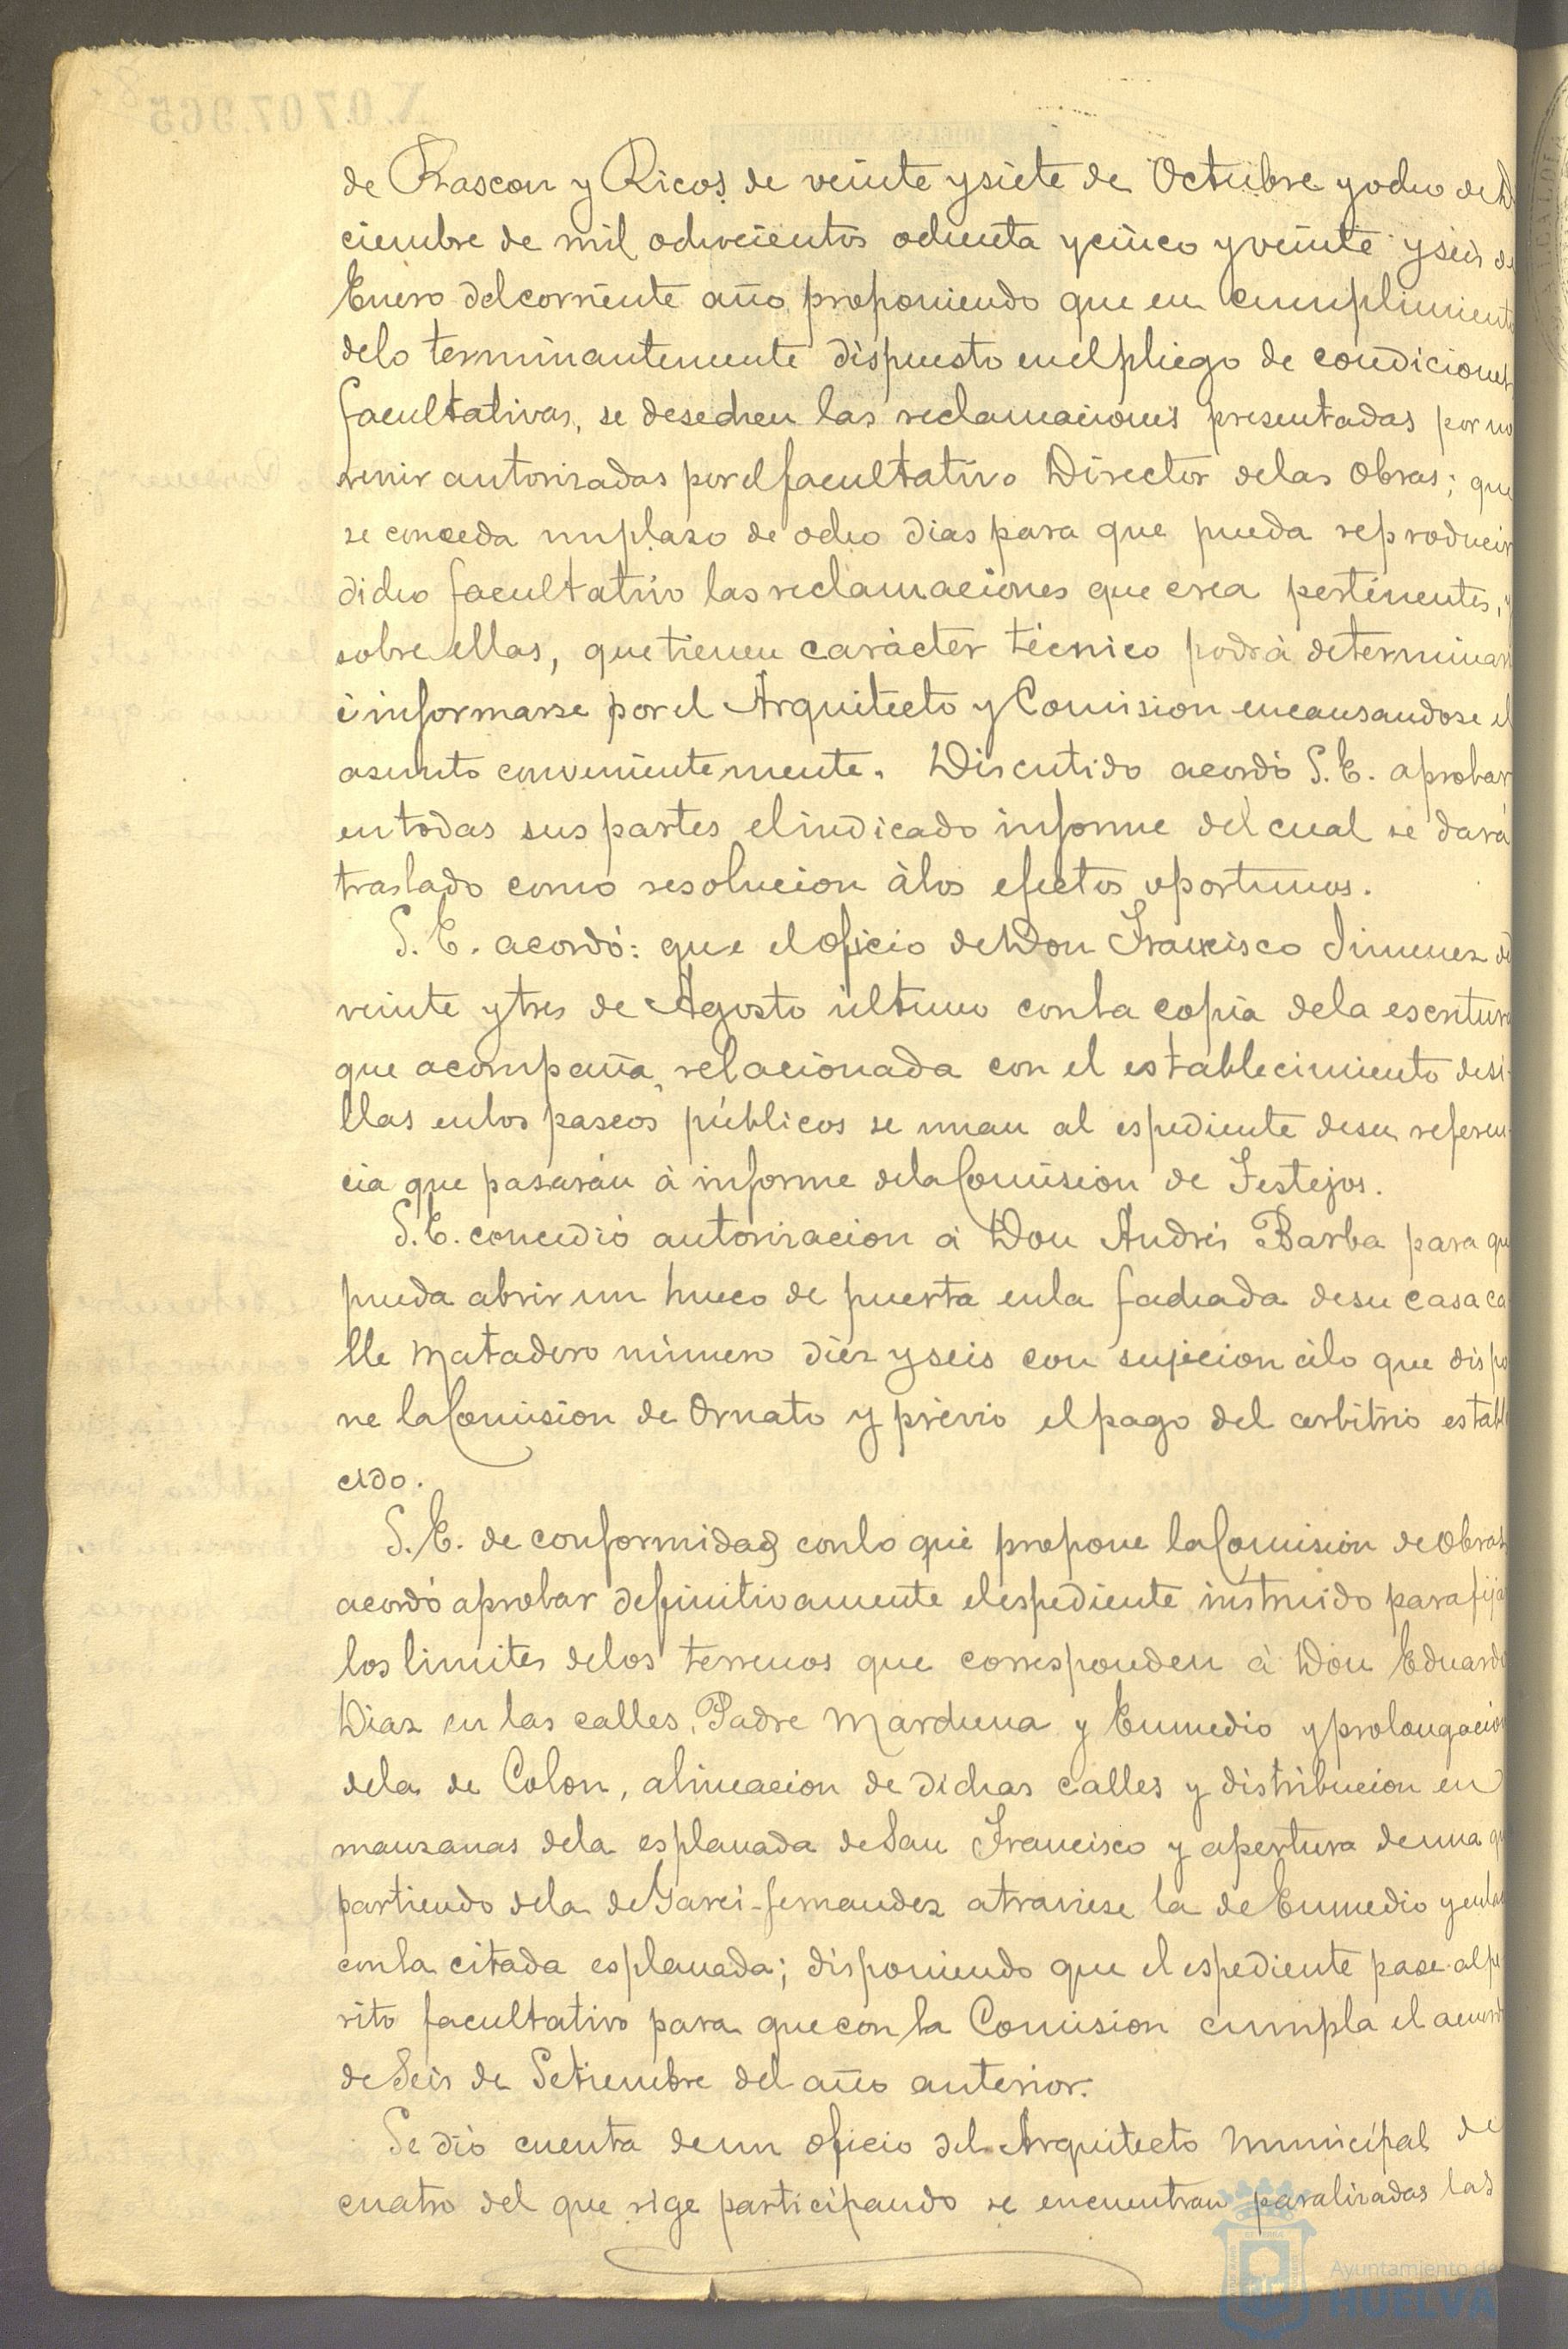 de Rascon y Ricos de veinte y siete de Octubre y ocho de Di
ciembre de mil ochocientos ochenta y cinco y veinte y seis de
Enero del corriente año proponiendo que en cumplimiento
de lo terminantemente dispuesto en el pliego de condiciones
facultativas, se desechen las reclamaciones presentadas por no
venir autorizadas por el facultativo Director de las Obras; que
se conceda un plazo de ocho dias para que pueda reproducir
dicho facultativo las reclamaciones que crea pertinentes, y
sobre ellas, que tienen carácter técnico podrá determinar
é informarse por el Arquitecto y Comision encausandose el
asunto convenientemente. Discutido acordó S.E. aprobar
en todas sus partes el indicado informe del cual se dará
traslado como resolucion á los efectos oportunos.
S. E. acordó: que el oficio de Don Francisco Jimenez de
veinte y tres de Agosto último con la copia de la escritura
que acompaña, relacionada con el establecimiento de si-
llas en los paseos públicos se unan al espediente de su referen-
cia que pasarán á informe de la Comision de Festejos.
S.E. concedió autorizacion á Don Andrés Barba para que
pueda abrir un hueco de puerta en la fachada de su casa ca
lle Matadero número diez y seis con sujecion á lo que dispo
ne la Comision de Ornato y prévio el pago del arbitrio estable
cido.
S. E. de conformidad con lo que propone la Comision de Obras
acordó aprobar definitivamente el espediente instruido para fijar
los limites de los terrenos que corresponden á Don Eduardo
Diaz en las calles, Padre Marchena y Enmedio y prolongacion
de la de Colon, alineacion de dichas calles y distribucion en
manzanas de la esplanada de San Francisco y apertura de una que
partiendo de la de Garci-fernandez atraviese la de Enmedio y enlace
con la citada esplanada; disponiendo que el espediente pase al pe
rito facultativo para que con la Comision cumpla el acuerdo
de Seis de Setiembre del año anterior.
Se dió cuenta de un oficio del Arquitecto Municipal de
cuatro del que rige participando se encuentran paralizadas las
Ayuntamiento de
HUELVA